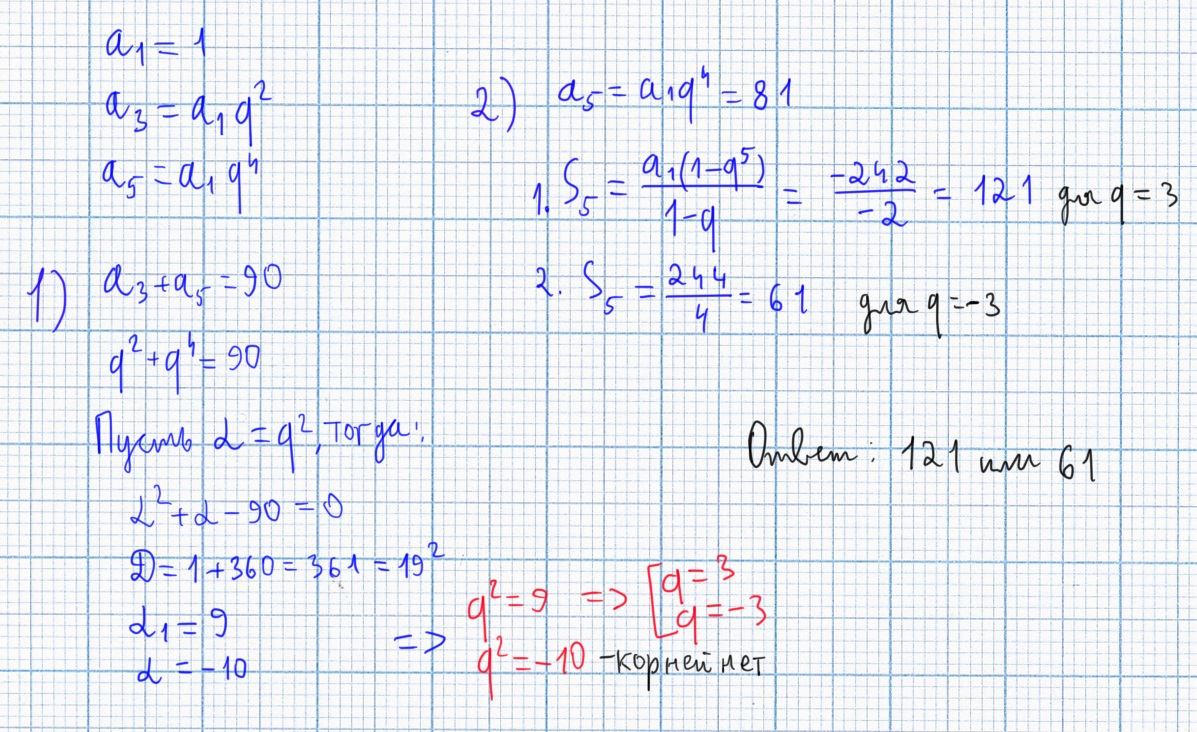 a₁ = 1
a₃ = a₁ q²
a₅ = a₁ q⁴
1) a₃ + a₅ = 90
q² + q⁴ = 90
Пусть α = q², тогда:
α² + α − 90 = 0
D = 1 + 360 = 361 = 19²
α₁ = 9
α = −10
=> q² = 9 => [ q = 3
q = −3
q² = −10 − корней нет
2) a₅ = a₁q⁴ = 81
1. S₅ = a₁(1−q⁵)/(1−q) = −242/−2 = 121 для q = 3
2. S₅ = 244/4 = 61 для q = −3
Ответ: 121 или 61